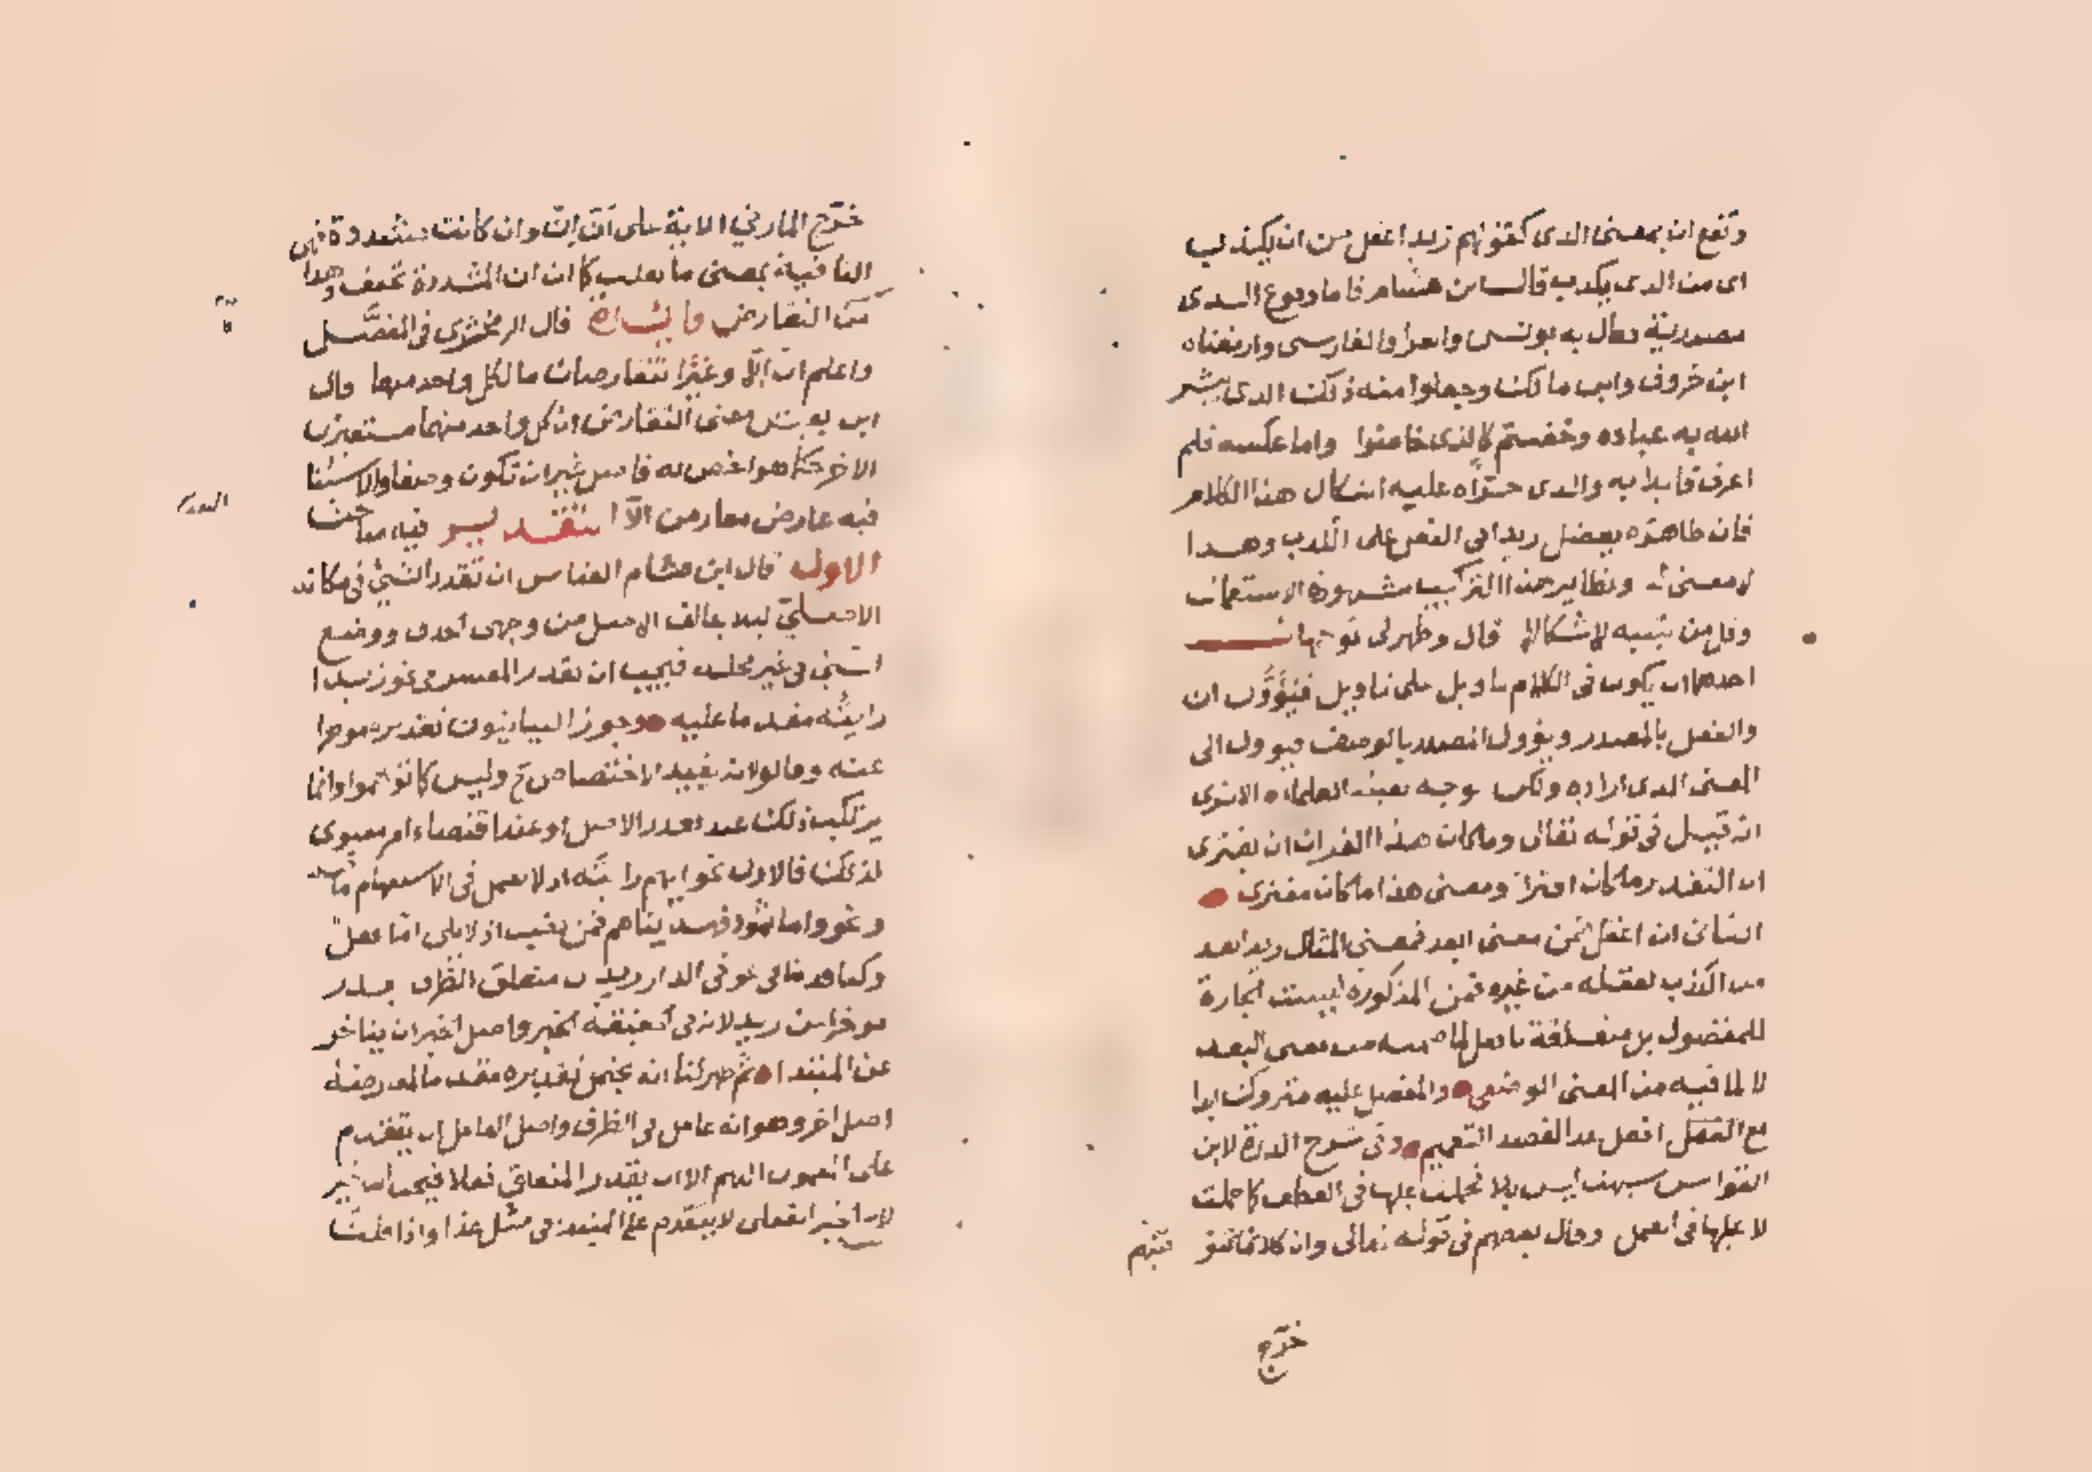 وتقع ان بمعنى الذى كقولهم زيد اعقل من ان يكذب
اى من الذى يكذب قال ابن هشام فاما وقوع الذى
مصدرية فقال به يونس والفرا والفارسى وارتضاه
ابن خروف وابن مالك وجعلوا منه ذلك الذى يبشر
الله به عباده وخضتم كالذى خاضوا واما عكسه فلم
اعرف قايلا به والذى جرأه عليه اشكال هذا الكلام
فان ظاهره تفضيل زيد فى العقل على الكذب وهذا
لا معنى له ونظاير هذا التركيب مشهورة الاستعمال
وقل من يتنبه لاشكالها قال وظهر لى توجيهان
احدهما ان يكون فى الكلام تاويل على تاويل فيؤول ان
والفعل بالمصدر ويؤول المصدر بالوصف فيوول الى
المعنى الذى اراده ولكن بوجه يقبله العلماء الا ترى
انه قيل فى قوله تعالى وما كان هذا القران ان يفترى
ان التقدير ما كان افتراء ومعنى هذا ما كان مفترى
الثانى ان اعقل ضمن معنى ابعد فمعنى المثال زيد ابعد
من الكذب لفضله من غيره فمن المذكورة ليست الجارة
للمفضول بل متعلقة بافعل لما ضمنه من معنى البعد
لا لما فيه من المعنى الوضعى والمفضل عليه متروك ابدا
مع افعل هذا لقصد التعميم وفى شرح الدرة لابن
القواس شبهت ليس بلا فحملت عليها فى العطف كما حملت
لا عليها فى العمل وقال بعضهم فى قوله تعالى وان كلا لما
خرج
خرج المازنى الاية على ان إنّ وان كانت مشددة فهى
النافية بمعنى ما ثقلت كما ان ان المشددة تخفف وهذا
من التقارض قال الزمخشرى فى المفصل
واعلم ان الا وغيرا تتقارضان ما لكل واحد منهما قال
ابن يعيش معنى التقارض ان كل واحد منهما يستعير من
الاخر حكما هو اخص به فاصل غير ان تكون وصفا والاستثنا
فيه عارض معار من الا التقدير فيه مباحث
الاول قال ابن هشام القياس ان تقدر الشئ فى مكانه
الاصلى ليلا يخالف الاصل من وجهين الحذف ووضع
الشئ فى غير محله فيجب ان تقدر المفسر فى نحو زيدا
رايته مقدما عليه وجوز البيانيون تقديره موخرا
عنه وقالوا لانه يفيد الاختصاص ح وليس كما توهموا وانما
يرتكب ذلك عند تعذر الاصل او عند اقتضاء امر معنوى
لذلك فالاول نحو ايهم رايته اذ لا يعمل فى الاستفهام ما قبله
ونحو واما ثمود فهديناهم فمن نصب اذ لا يلى اما فعل
وكما قدمنا فى نحو فى الدار زيد ان متعلق الظرف يقدر
موخرا عن زيد لانه فى الحقيقة الخبر واصل الخبر ان يتاخر
عن المبتدا ثم ظهر لنا انه يحتمل تقديره مقدما لمعارضة
اصل اخر وهو انه عامل فى الظرف واصل العامل ان يتقدم
على المعمول اللهم الا ان يقدر المتعلق فعلا فيجب التاخير
لان الخبر الفعلى لا يتقدم على المبتدا فى مثل هذا واذا قلت